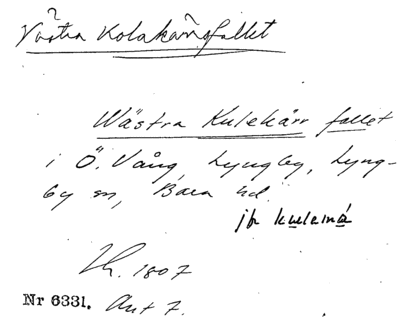 Västra Kolakärrsfallet
Wästra Kulekärr fallet
i Ö. Vång, Lyngby, Lyng-
by sn, Bara hd.
jfr kulemá
Lh. 1807
Nr 6331. Akt 7.